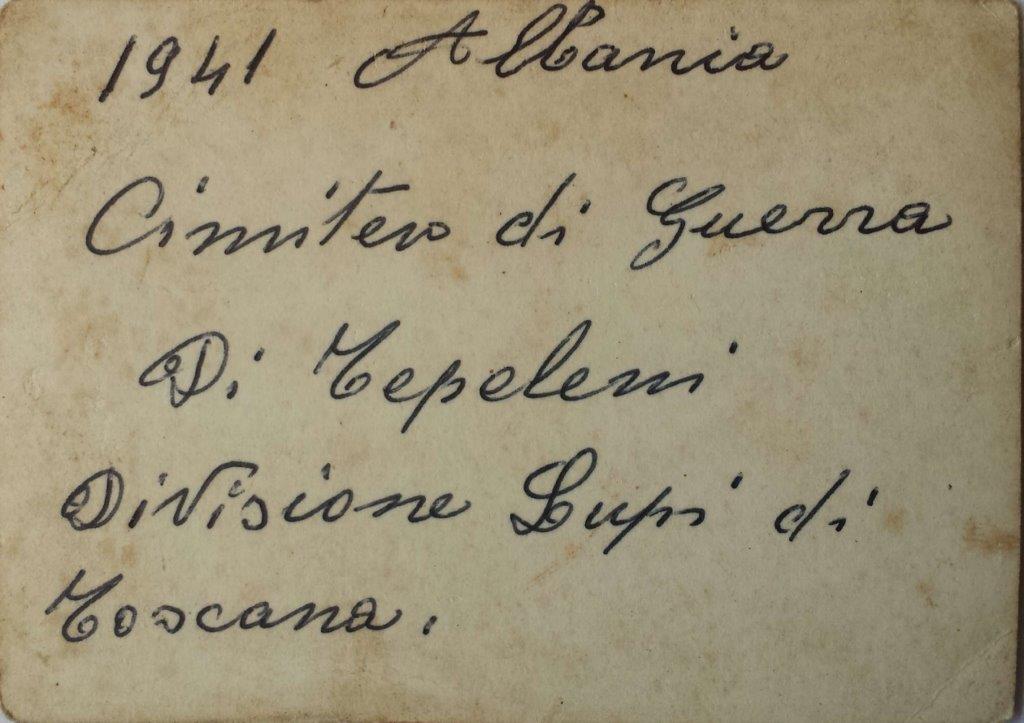 1941 Albania
Cimitero di Guerra
Di Tepeleni
Divisione Lupi di
Toscana.